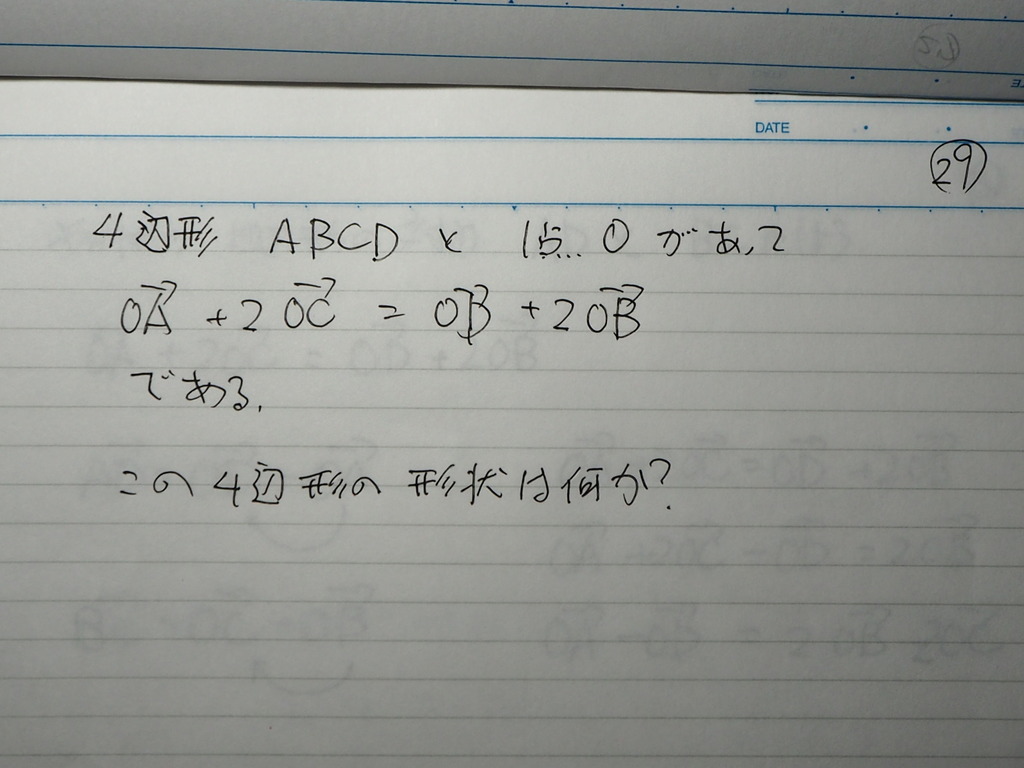 DATE
29
4辺形 ABCD と 1点 O があって
OA + 2 OC = OB + 2 OB
である.
この 4辺形の 形状は何か?